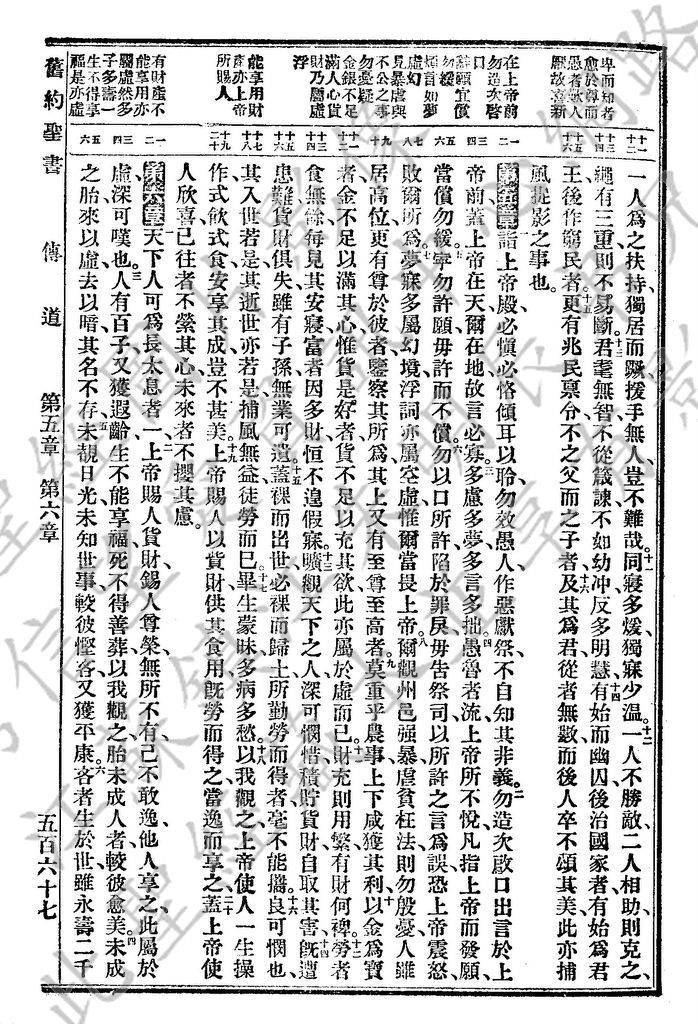 一人爲之扶持獨居而蹶援手無人豈不難哉同寢多煖獨寐少溫一人不勝敵二人相助則克之
繩有三重則不易斷君耄無智不從箴諫不如幼冲反多明慧有始而幽囚後治國家者有始爲君
王後作窮民者更有兆民禀命不之父而之子者及其爲君從者無數而後人卒不頌其美此亦捕
風捉影之事也
第五章詣上帝殿必愼必恪傾耳以聆勿效愚人作惡獻祭不自知其非義勿造次啟口出言於上
帝前蓋上帝在天爾在地故言必寡多慮多夢多言多拙愚魯者流上帝所不悅凡指上帝而發願
當償勿緩寧勿許願毋許而不償勿以口所許陷於罪戾毋告祭司以所許之言爲誤恐上帝震怒
敗爾所爲夢寐多屬幻境浮詞亦屬空虛惟爾當畏上帝爾觀州邑强暴虐貧枉法則勿殷憂人雖
居高位更有尊於彼者鑒察其所爲其上又有至尊至高者莫重乎農事上下咸獲其利以金爲寶
者金不足以滿其心惟貨是好者貨不足以充其欲此亦屬於虛而已財充則用繁有財何裨勞者
食無餘每見其安寢富者因多財恒不遑假寐曠觀天下之人深可憫惜積貯貨財自取其害旣遭
患難貨財俱失雖有子孫無業可遺蓋裸而出世必裸而歸土所勤勞而得者毫不能攜良可憫也
其入世若是其逝世亦若是捕風無益徒勞而已畢生蒙昧多病多愁以我觀之上帝使人一生操
作式飮式食安享其成豈不甚美上帝賜人以貨財供其食用旣勞而得之當逸而享之蓋上帝使
人欣喜已往者不縈其心未來者不攖其慮
第六章天下人可爲長太息者一上帝賜人貨財錫人尊榮無所不有己不敢逸他人享之此屬於
虛深可嘆也人有百子又獲遐齡生不能享福死不得善葬以我觀之胎未成人者較彼愈美未成
之胎來以虛去以暗其名不存未覩日光未知世事較彼慳吝又獲平康吝者生於世雖永壽二千
舊約聖書
傳道
第五章 第六章
五百六十七
卑而知者
愈於尊而
愚者衆人
厭故喜新
在上帝前
勿造次啓
口
許願宜償
勿緩
煩言如夢
虛幻
見暴虐與
不公之事
勿憂疑
金銀不足
滿人心貨
財乃屬虛
浮
能享用財
產亦上帝
所賜人
有財產不
能享用亦
屬虛然多
子多壽一
生不得享
福是亦虛